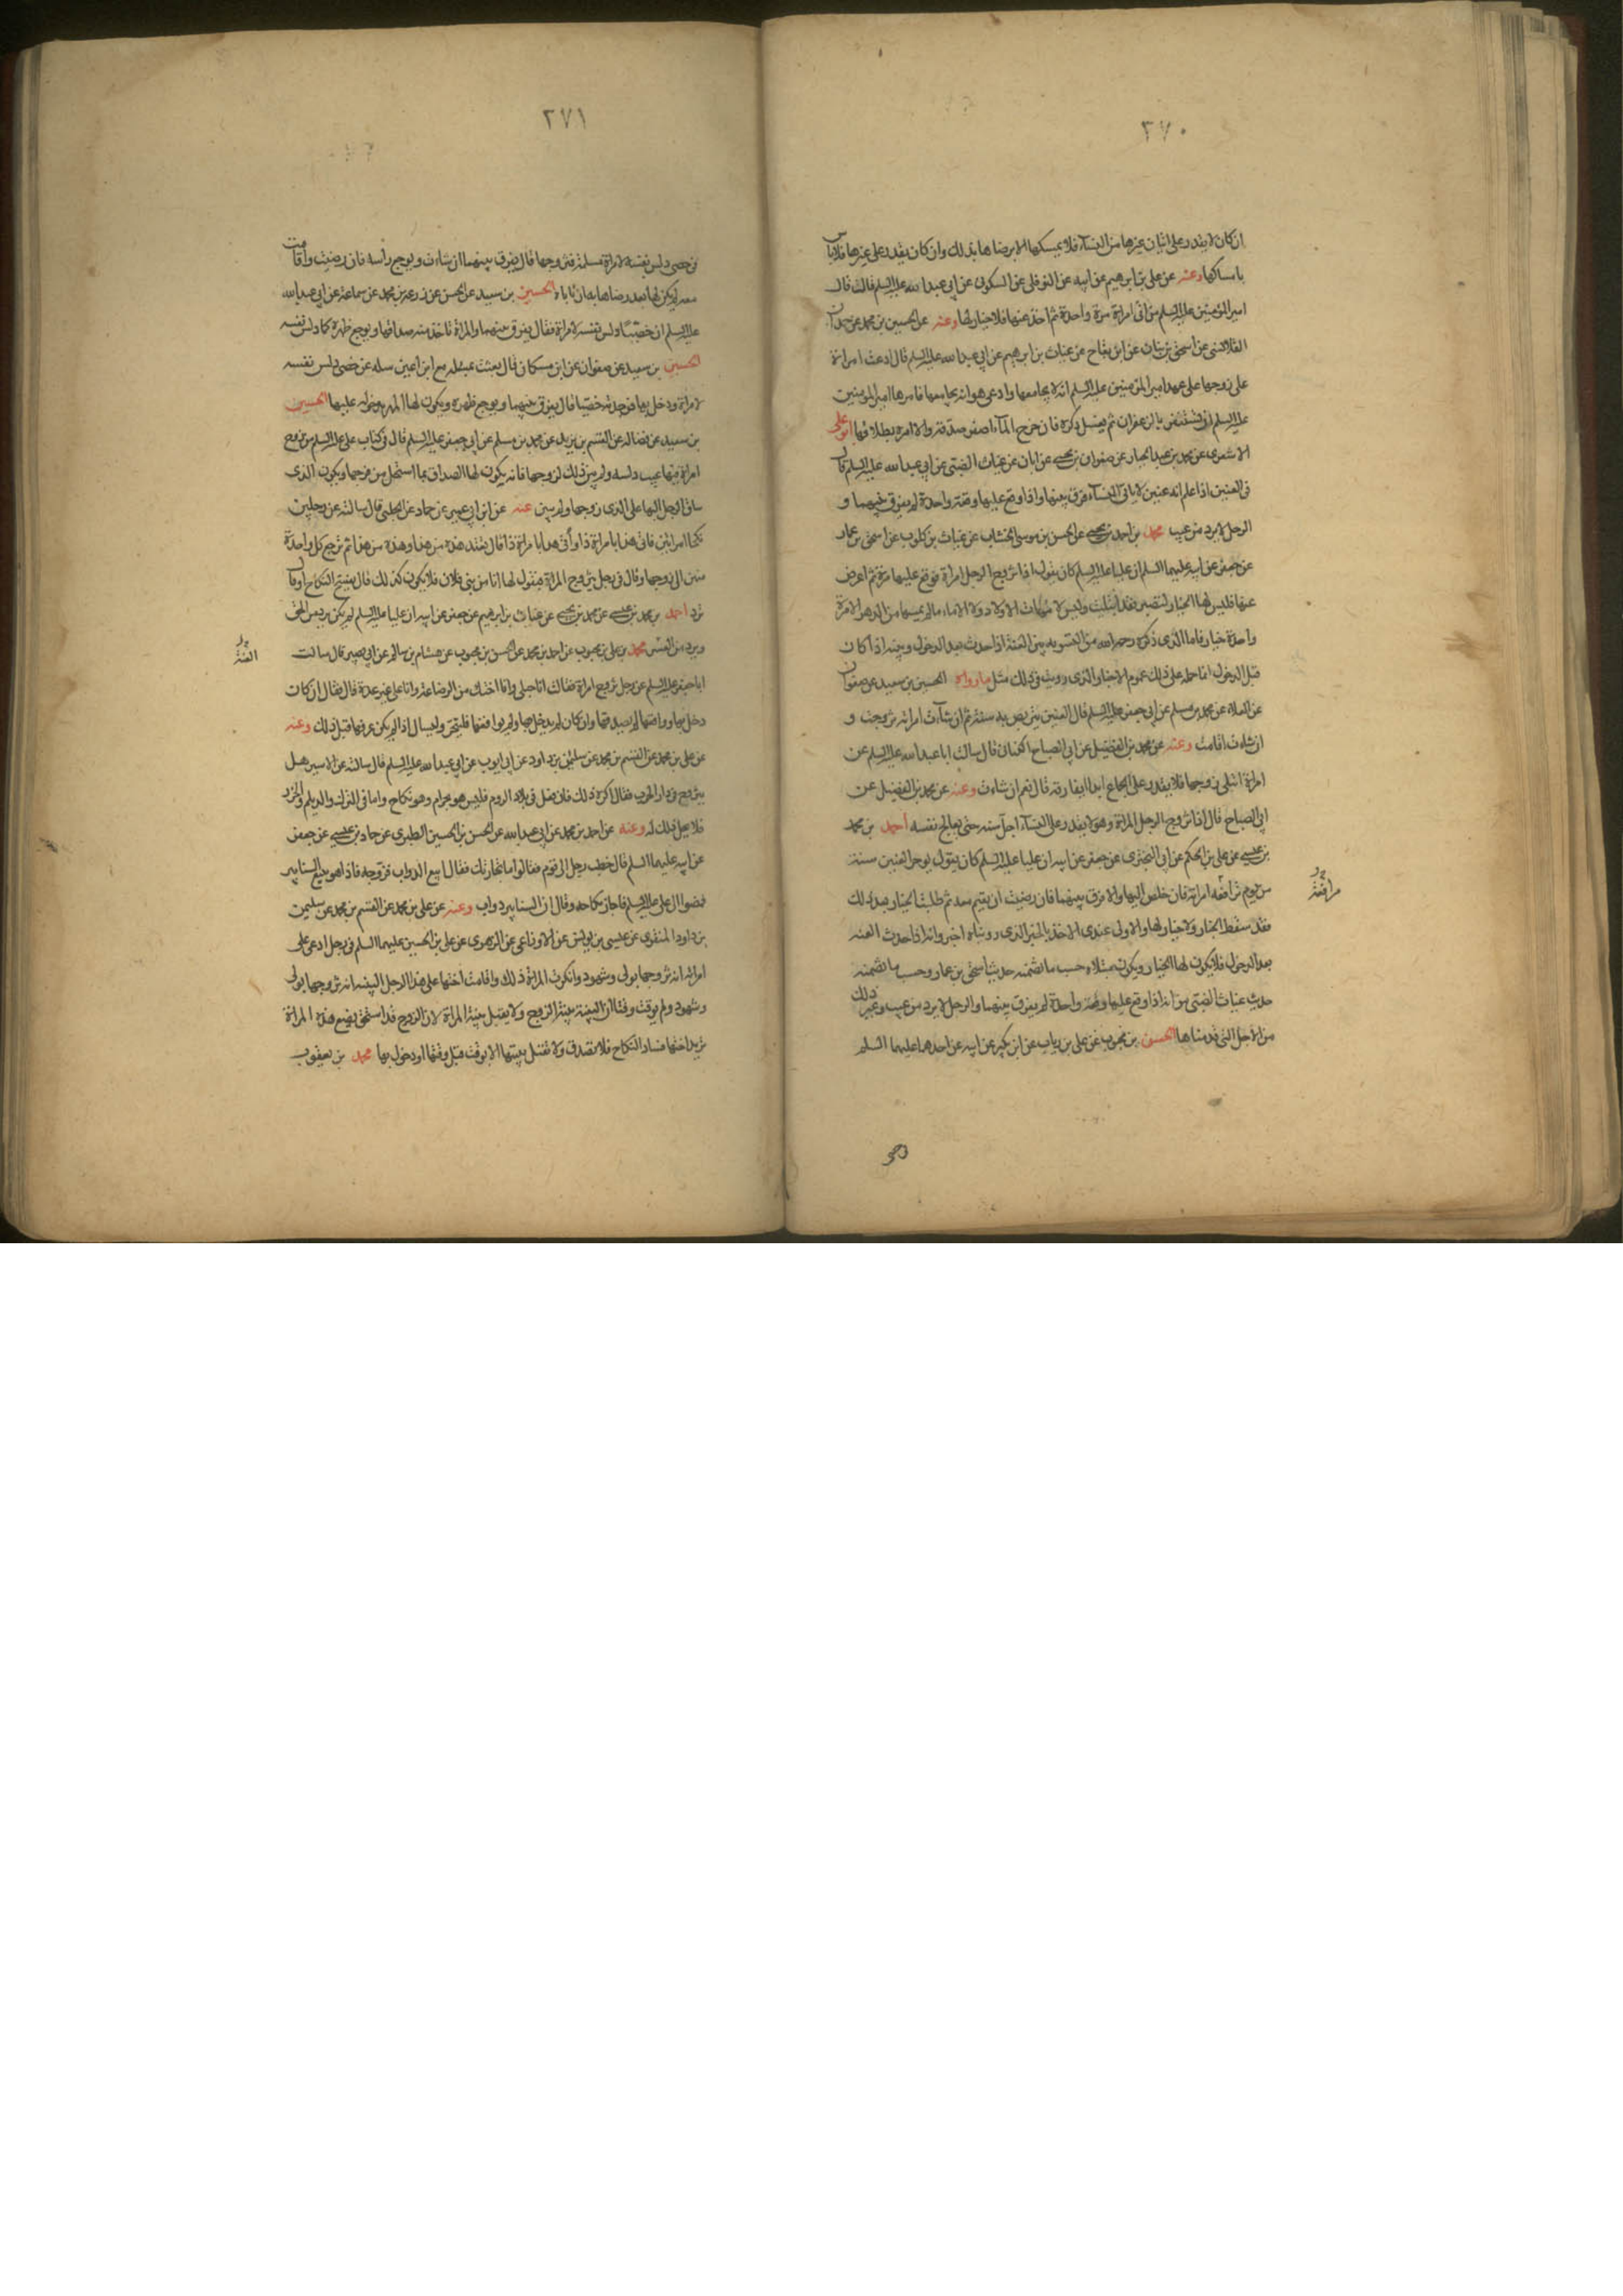 ٢٧٠
ان كان لا يقدر على اتيان غيرها من النسآء فلا يمسكها الا برضاها بذلك وان كان يقدر على غيرها فلا باس
بامساكها وعنه عن علي بن ابرهيم عن ابيه عن النوفلي عن السكوني عن ابي عبدا لله عليه السلم قال قال
امير المؤمنين عليه السلم من اتى امراة مرة واحدة ثم اخذ عنها فلا خيار لها وعنه عن الحسين بن محمد عن حمدان
القلانسي عن اسحق بن بنان عن ابن بقاح عن غياث بن ابرهيم عن ابي عبدا لله عليه السلم قال ادعت امراة
على زوجها على عهد امير المؤمنين عليه السلم انه لا يجامعها وادعى هو انه يجامعها فامرها امير المؤمنين
عليه السلم ان تستذفر بالزعفران ثم يغسل ذكره فان خرج المآء اصفر صدقه والا امره بطلاقها ابو علي
الاشعري عن محمد بن عبد الجبار عن صفوان بن يحيى عن ابان عن غياث الضبي عن ابي عبدا لله عليه السلم قال
في العنين اذا علم انه عنين لا ياتي النسآء فرق بينهما واذا وقع عليها وقعة واحدة لم يفرق بينهما و
الرجل لا يرد من عيب محمد بن احمد بن يحيى عن الحسن بن موسى الخشاب عن غياث بن كلوب عن اسحق بن عمار
عن جعفر عن ابيه عليهما السلم ان عليا عليه السلم كان يقول اذا تزوج الرجل امراة فوقع عليها مرة ثم اعرض
عنها فليس لها الخيار لتصبر فقد ابتليت وليس لامهات الاولاد ولا الاماء ما لم يمسها من الدهر الا مرة
واحدة خيار فاما الذى ذكره رحمه الله من التسوية بين العنة اذا حدث بعد الدخول وبينه اذا كان
قبل الدخول انما حمله على ذلك عموم الاخبار والذى رويت فى ذلك مثل ما رواه الحسين بن سعيد عن صفوان
عن العلاء عن محمد بن مسلم عن ابي جعفر عليه السلم قال العنين يتربص به سنة ثم ان شآءت امراته تزوجت و
ان شاءت اقامت وعنه عن محمد بن الفضيل عن ابي الصباح الكناني قال سالت ابا عبدا لله عليه السلم عن
امراة ابتلى زوجها فلا يقدر على الجماع ابدا ايفارقه قال نعم ان شاءت وعنه عن محمد بن الفضيل عن
ابي الصباح قال اذا تزوج الرجل المراة وهو لا يقدر على النسآء اجل سنة حتى يعالج نفسه احمد بن محمد
بن عيسى عن علي بن الحكم عن ابي البختري عن جعفر عن ابيه ان عليا عليه السلم كان يقول يوخر العنين سنة
من يوم ترافعه امراته فان خلص اليها والا فرق بينهما فان رضيت ان يقيم معه ثم طلبت الخيار بعد ذلك
مرافعة
فقد سقط الخيار ولا خيار لها والاولى عندى الاخذ بالخبر الذى رويناه اخيرا وانه اذا حدث العنة
بعد الدخول فلا يكون لها الخيار ويكون حسب ما تضمنه حديث اسحق بن عمار وحسب ما تضمنه
حديث غياث الضبي من انه اذا وقع عليها وقعة واحدة لم يفرق بينهما والرجل لا يرد من عيب وغير ذلك
من الاخبار التى قدمناها الحسن بن محبوب عن علي بن رياب عن ابن بكير عن ابيه عن احدهما عليهما السلم
٢٧١
في خصى دلس نفسه لامراة مسلمة فتزوجها قال يفرق بينهما ان شاءت ويوجع راسه فان رضيت واقامت
معه لم يكن لها بعد رضاها به ان تاباه الحسين بن سعيد عن الحسن عن زرعة بن محمد عن سماعة عن ابي عبدا لله
عليه السلم ان خصيا دلس نفسه لامراة فقال يفرق بينهما والمراة تاخذ منه صداقها ويوجع ظهره كما دلس نفسه
الحسين بن سعيد عن صفوان عن ابن مسكان قال بعثت بمسئلة مع ابن اعين سله عن خصى دلس نفسه
لامراة ودخل بها فوجدته خصيا قال يفرق بينهما ويوجع ظهره ويكون لها المهر بدخوله عليها الحسين
بن سعيد عن فضالة عن القسم بن بريد عن محمد بن مسلم عن ابي جعفر عليه السلم قال فى كتاب على عليه السلم من زوج
امراة فيها عيب دلسه ولم يبين ذلك لزوجها فانه يكون لها الصداق بما استحل من فرجها ويكون الذى
ساق الرجل اليها على الذى زوجها ولم يبين عنه عن ابن ابي عمير عن حماد عن الحلبي قال سالته عن رجلين
نكحا امراتين فاتى هذا بامراة ذا واتى هذا بامراة ذا قال تعتد هذه من هذا وهذه من هذا ثم ترجع كل واحدة
منهن الى زوجها وقال فى رجل يتزوج المراة فيقول لها انا من بني فلان فلا يكون كذلك قال يفسخ النكاح او قال
ترد احمد بن محمد بن عيسى عن محمد بن يحيى عن غياث بن ابرهيم عن جعفر عن ابيه ان عليا عليه السلم لم يكن يرد من الحمق
ويرد من العسر محمد بن علي بن محبوب عن احمد بن محمد عن الحسن بن محبوب عن هشام بن سالم عن ابي بصير قال سالت
العنة
ابا جعفر عليه السلم عن رجل تزوج امراة فقالت انا حبلى وانا اختك من الرضاعة وانا على غير عدة قال فقال ان كان
دخل بها وواقعها لم يصدقها وان كان لم يدخل بها ولم يواقعها فليختبر وليسال اذا لم يكن عرفها قبل ذلك وعنه
عن علي بن محمد عن القسم بن محمد عن سليمن بن داود عن ابي ايوب عن ابي عبدا لله عليه السلم قال سالته عن الاسير هل
يتزوج فى دار الحرب فقال اكره ذلك فان فعل فى بلاد الروم فليس هو بحرام وهو نكاح واما فى الترك والديلم والخزر
فلا يحل ذلك له وعنه عن احمد بن محمد عن ابي عبدا لله عن الحسن بن الحسين الطبرى عن حماد بن عيسى عن جعفر
عن ابيه عليهما السلم قال خطب رجل الى قوم فقالوا ما تجارتك فقال ابيع الدواب فزوجه فاذا هو يبيع السنانير
فمضوا الى على عليه السلم فاجاز نكاحه وقال ان السنانير دواب وعنه عن علي بن محمد عن القسم بن محمد عن سليمن
بن داود المنقرى عن عيسى بن يونس عن الاوزاعى عن الزهرى عن على بن الحسين عليهما السلم فى رجل ادعى على
امراة انه تزوجها بولى وشهود وانكرت المراة ذلك واقامت اختها على هذا الرجل البينة انه تزوجها بولى
وشهود ولم يوقت وقتا ان البينة بينة الزوج ولا يقبل بينة المراة لان الزوج قد استحق بضع هذه المراة
تريد اختها فساد النكاح فلا تصدق ولا تقبل بينتها الا بوقت قبل وقتها او دخول بها محمد بن يعقوب